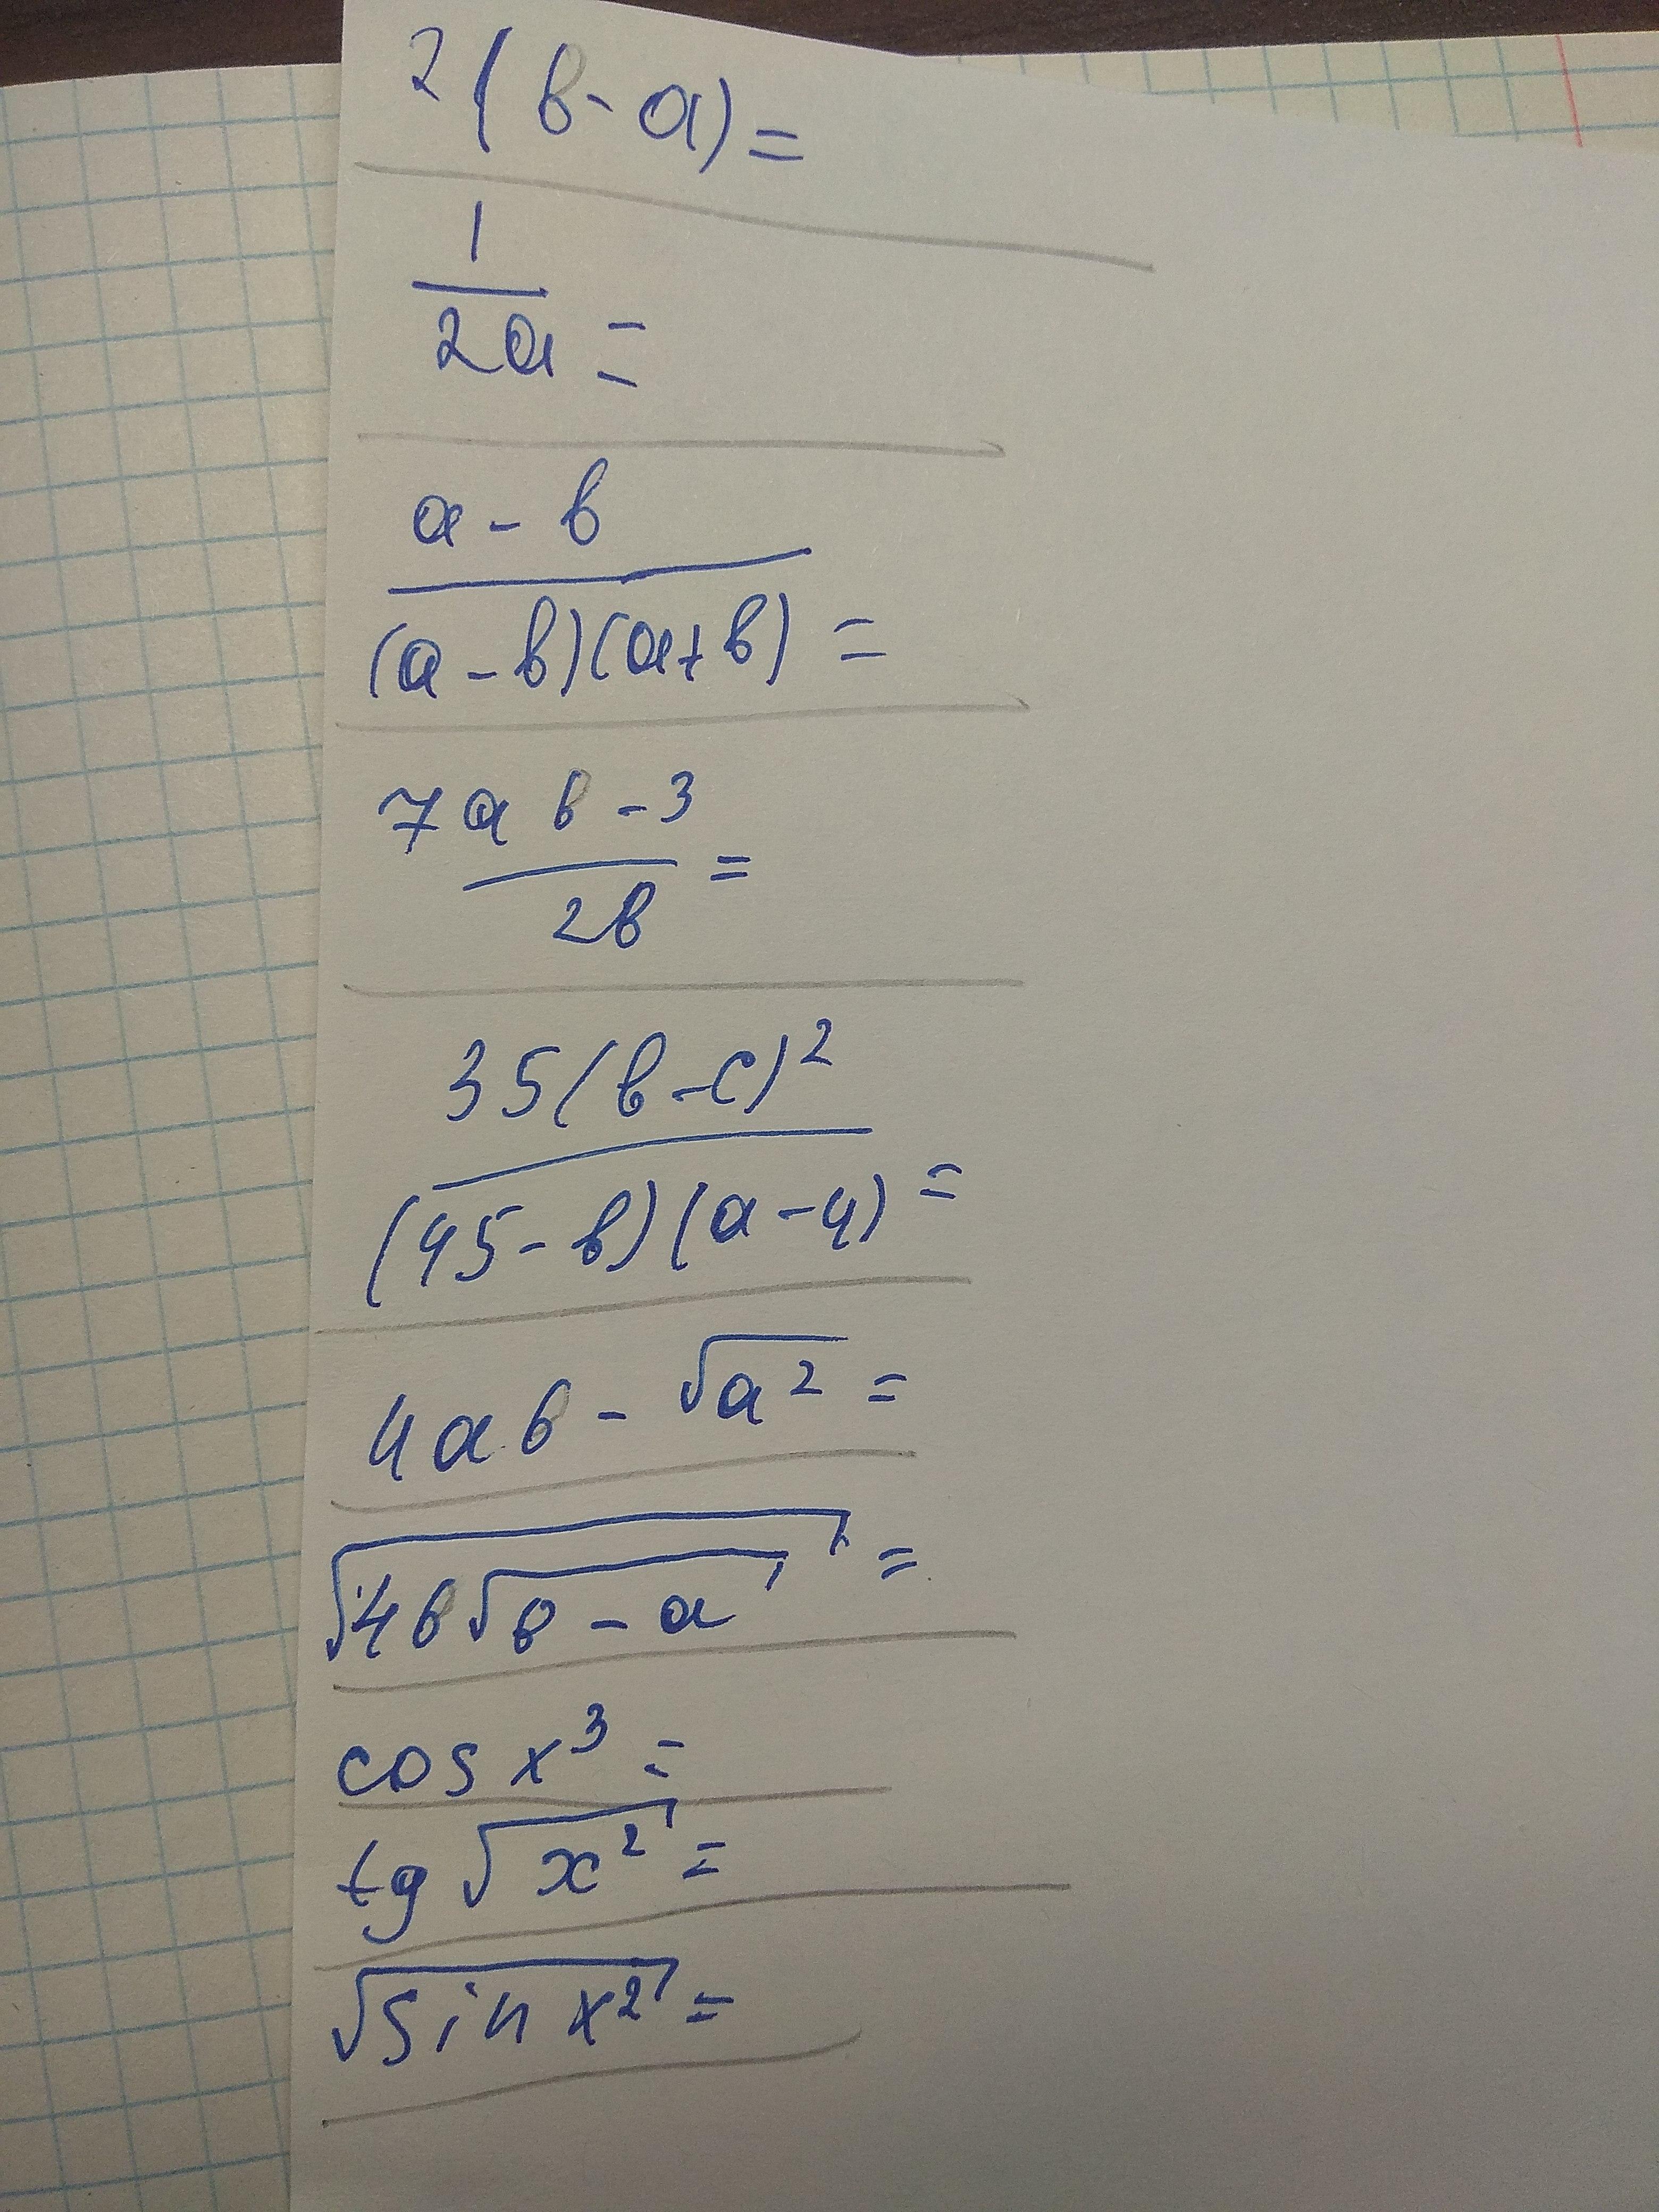 2(b-a)=
1
2a=
a-b
(a-b)(a+b)=
7ab-3
2b=
35(b-c)²
(45-b)(a-4)=
4ab-√a²=
√4b√b-a=
cos x³=
tg√x²=
√sin x²=